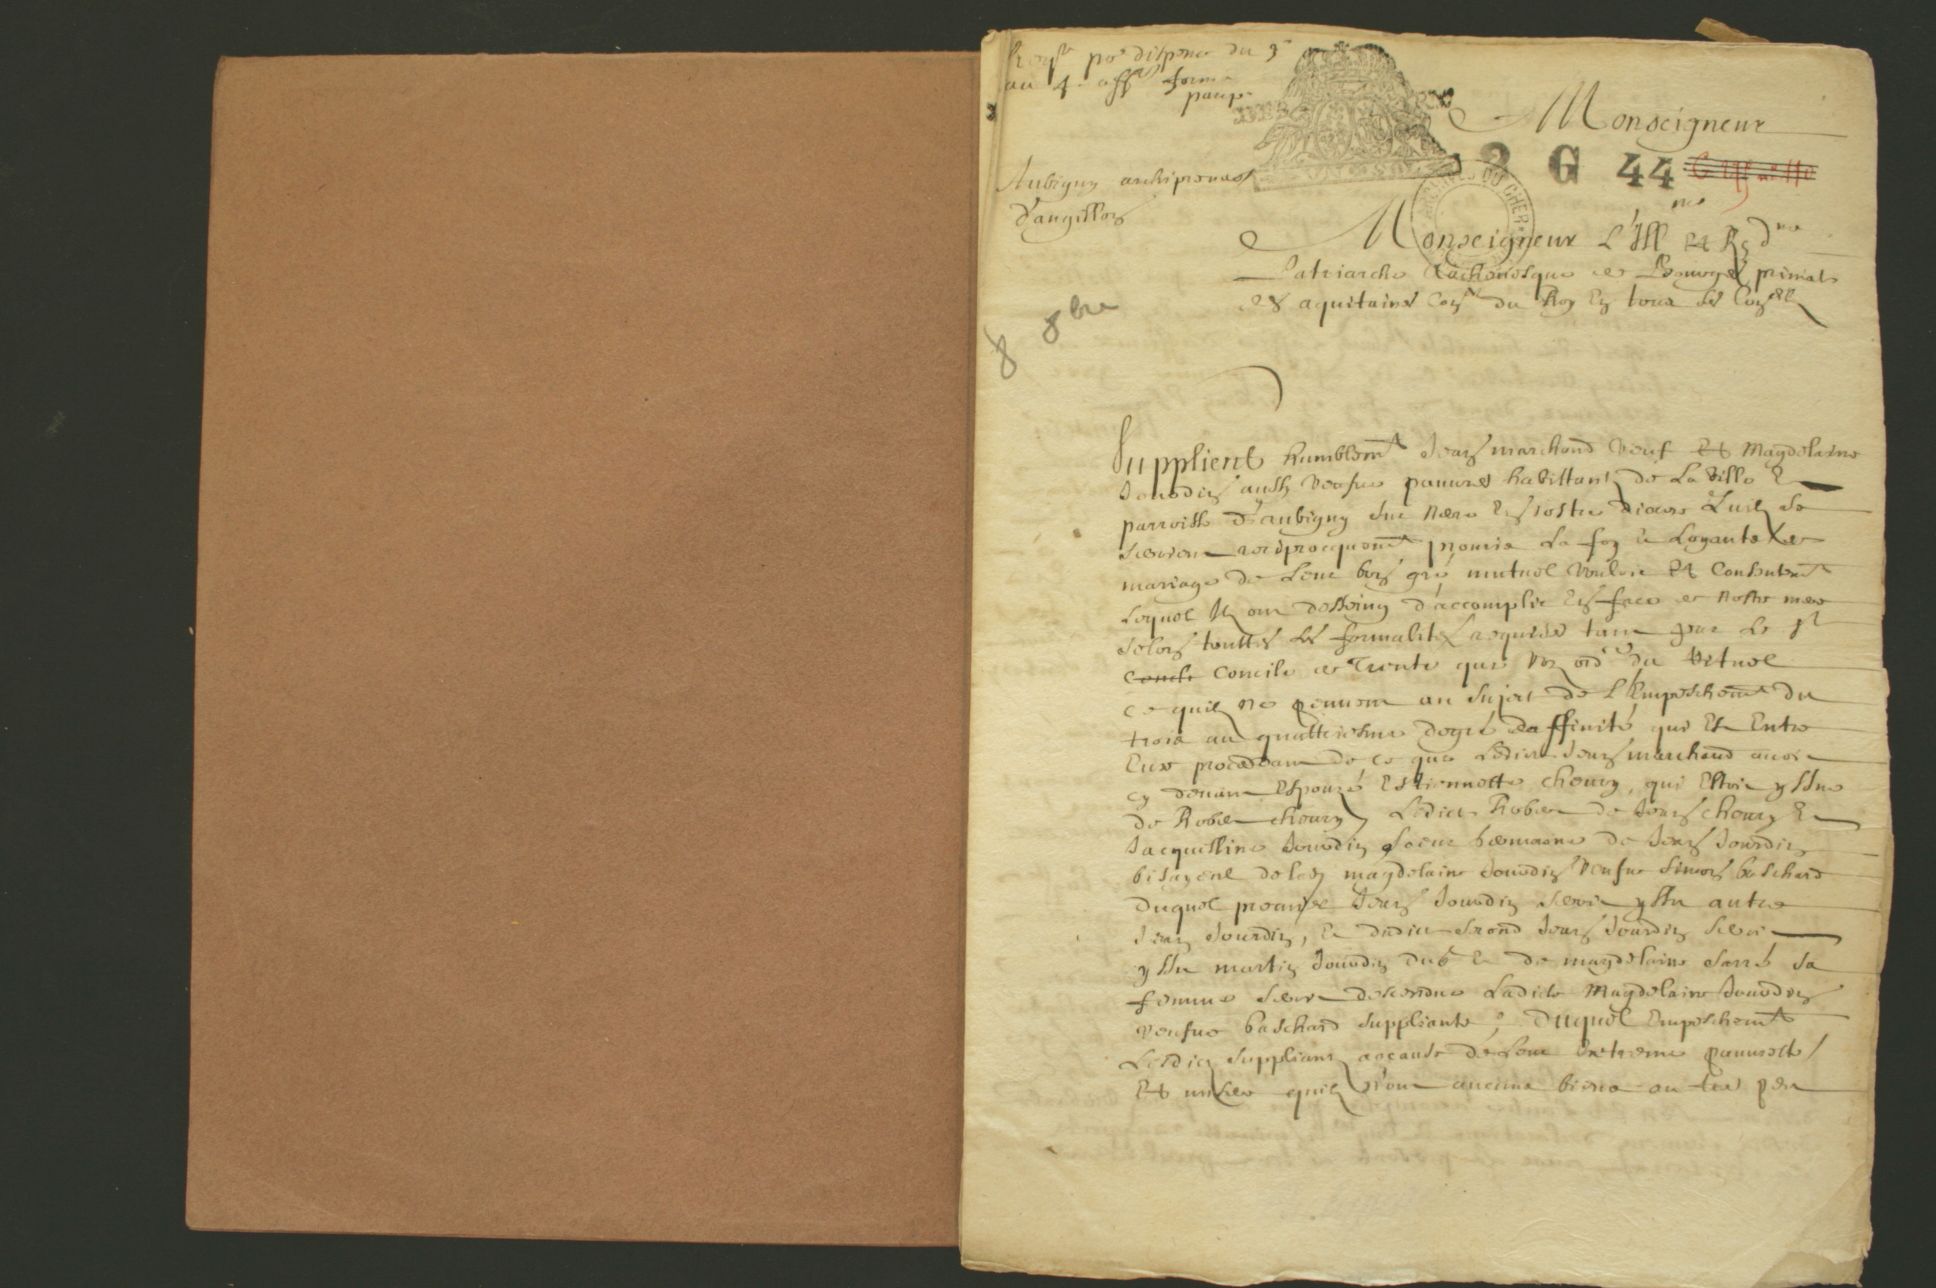 Reqte por dispence du 3e
au 4e aff. forma
paup.
Monseigneur
8 G 44
ARCHIVES DU CHER
Aubigny archiprevé
d'angillon
Monseigneur L'Ill me et Rg dme
Patriarche Archevesque de Bourges primat
des aquitaines Conser du Roy En tous ses Conseils
8 8bre
Supplient humblemt Jean marchand veuf Et Magdelaine
Jourdin aussy veufve pauvres habittants de La Ville Et
parroisse d'aubigny sur Nere En vostre diocese Quilz se
seroient reciprocquemt promis La foy et Loyauté de
mariage de Leur bon gré mutuel vouloir Et Consentemt
Lequel Ilz ont desseing d'accomplir En face de Nostre mere
selon touttes Les formalitez requises tant par Le st
Concile de Trente que voz ordces du Rituel
ce quilz ne peuvent au sujet de L'Empeschemt du
trois au quattriesme degré d'affinité qui Est Entre
Eux proceddant de ce que Ledict Jean marchand auroit
cy devant Espouzé Estiennette cheury, qui Estoit yssue
de Robert cheury, Ledict Robert de Jean cheury Et
Jacquelline Jourdin soeur germaine de Jean Jourdin
bisayeul de lad. magdelaine Jourdin veufve Simon baschard
Duquel premier Jean Jourdin seroit yssu autre
Jean Jourdin, Et dudict second Jean Jourdin seroit
yssu martin Jourdin dud. Et de magdelaine sarré sa
femme seroit descendue Ladicte Magdelaine Jourdin
veufve baschard suppliante, Duquel Empeschemt
Lesdictz supplians acause de Leur Extreme pauvreté
Et misere quilz n'ont aucuns biens ou tres peu